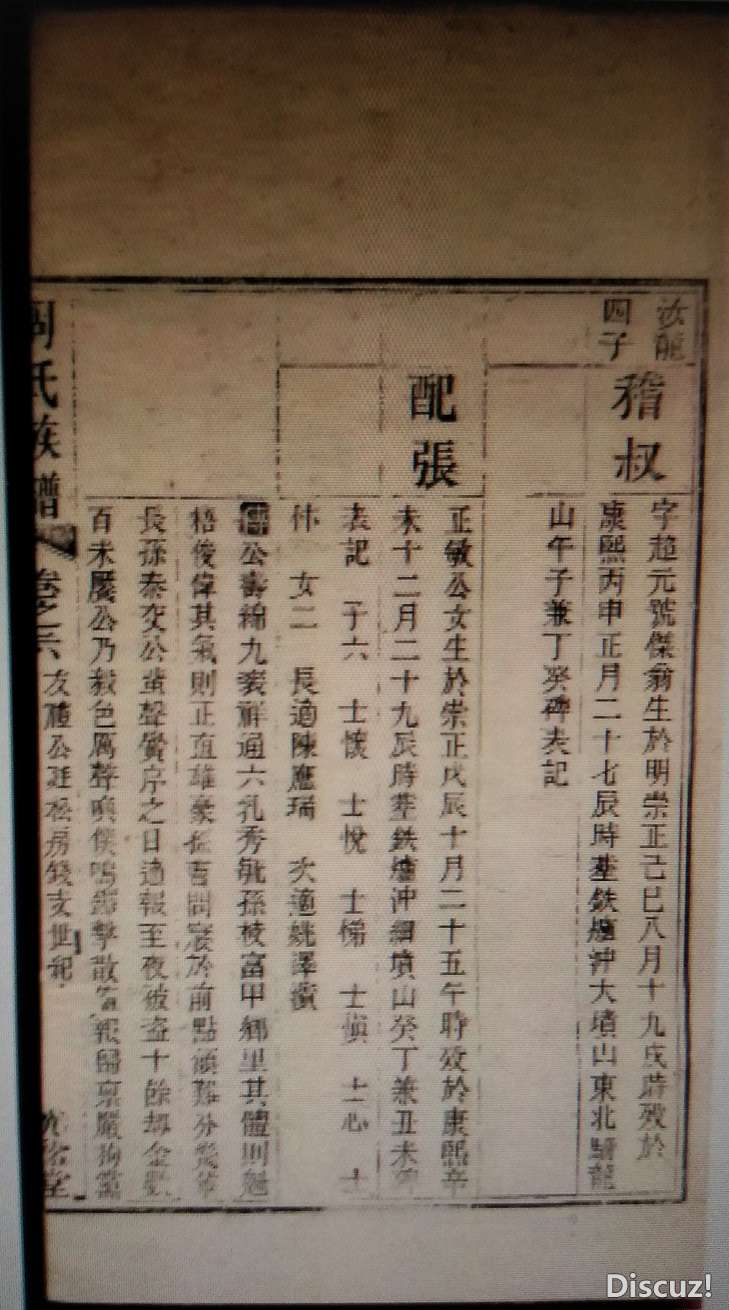 汝龍
四子
稽叔
字超元號傑翁生於明崇正己巳八月十九戌時歿於
康熙丙申正月二十七辰時塟鉄爐沖大墳山東北騎龍
山午子兼丁癸碑表記
配張
正敏公女生於崇正戊辰十月二十五午時歿於康熙辛
未十二月二十九辰時塟鉄爐沖細墳山癸丁兼丑未碑
表記 子六 士懷 士悅 士悌 士慎 士心 士
忭 女二 長適陳應瑞 次適姚澤
公壽綿九袠祥通六孔秀毓孫枝富甲鄉里其體則魁
梧俊偉其氣則正直雄豪 曾問寢於前點頷難分
長孫泰交公蜚聲黌序之日適報至夜被盗十餘刼金數
百未饜公乃毅色厲聲喚僕鳴鑼擊散 報歸 嚴拘黨
周氏族譜 卷之六 友勝公廷松房錢支世紀
堂
Discuz!